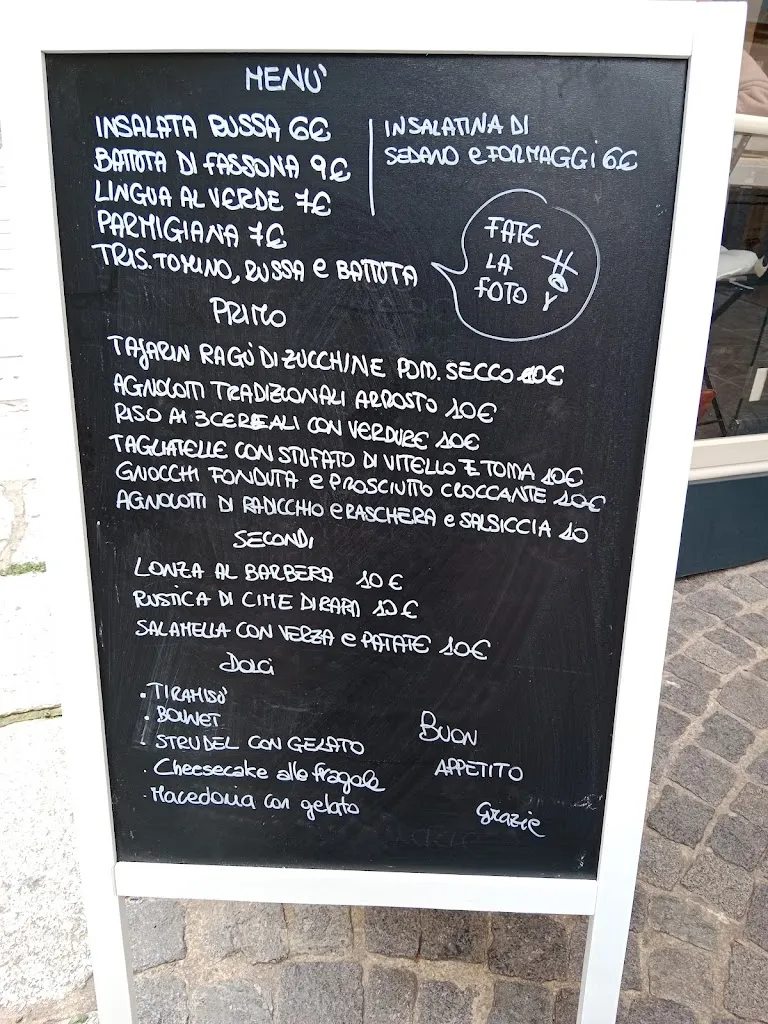 MENU'
INSALATA RUSSA 6€
BATTUTA DI FASSONA 9€
LINGUA AL VERDE 7€
PARMIGIANA 7€
TRIS. TOMINO, RUSSA e BATTUTA
INSALATINA DI
SEDANO e FORMAGGI 6€
FATE
LA
FOTO
PRIMO
TAJARIN RAGÙ DI ZUCCHINE POM. SECCO 10€
AGNOLOTTI TRADIZIONALI ARROSTO 10€
RISO AI 3 CEREALI CON VERDURE 10€
TAGLIATELLE CON STUFATO DI VITELLO E TOMA 10€
GNOCCHI FONDUTA e PROSCIUTTO CROCCANTE 10€
AGNOLOTTI DI RADICCHIO e RASCHERA e SALSICCIA 10
SECONDI
LONZA AL BARBERA 10€
RUSTICA DI CIME DI RAPA 10€
SALAMELLA CON VERZA e PATATE 10€
DOLCI
· TIRAMISÙ
· BOUNET
· STRUDEL CON GELATO
· Cheesecake alle fragole
· Macedonia con gelato
BUON
APPETITO
Grazie